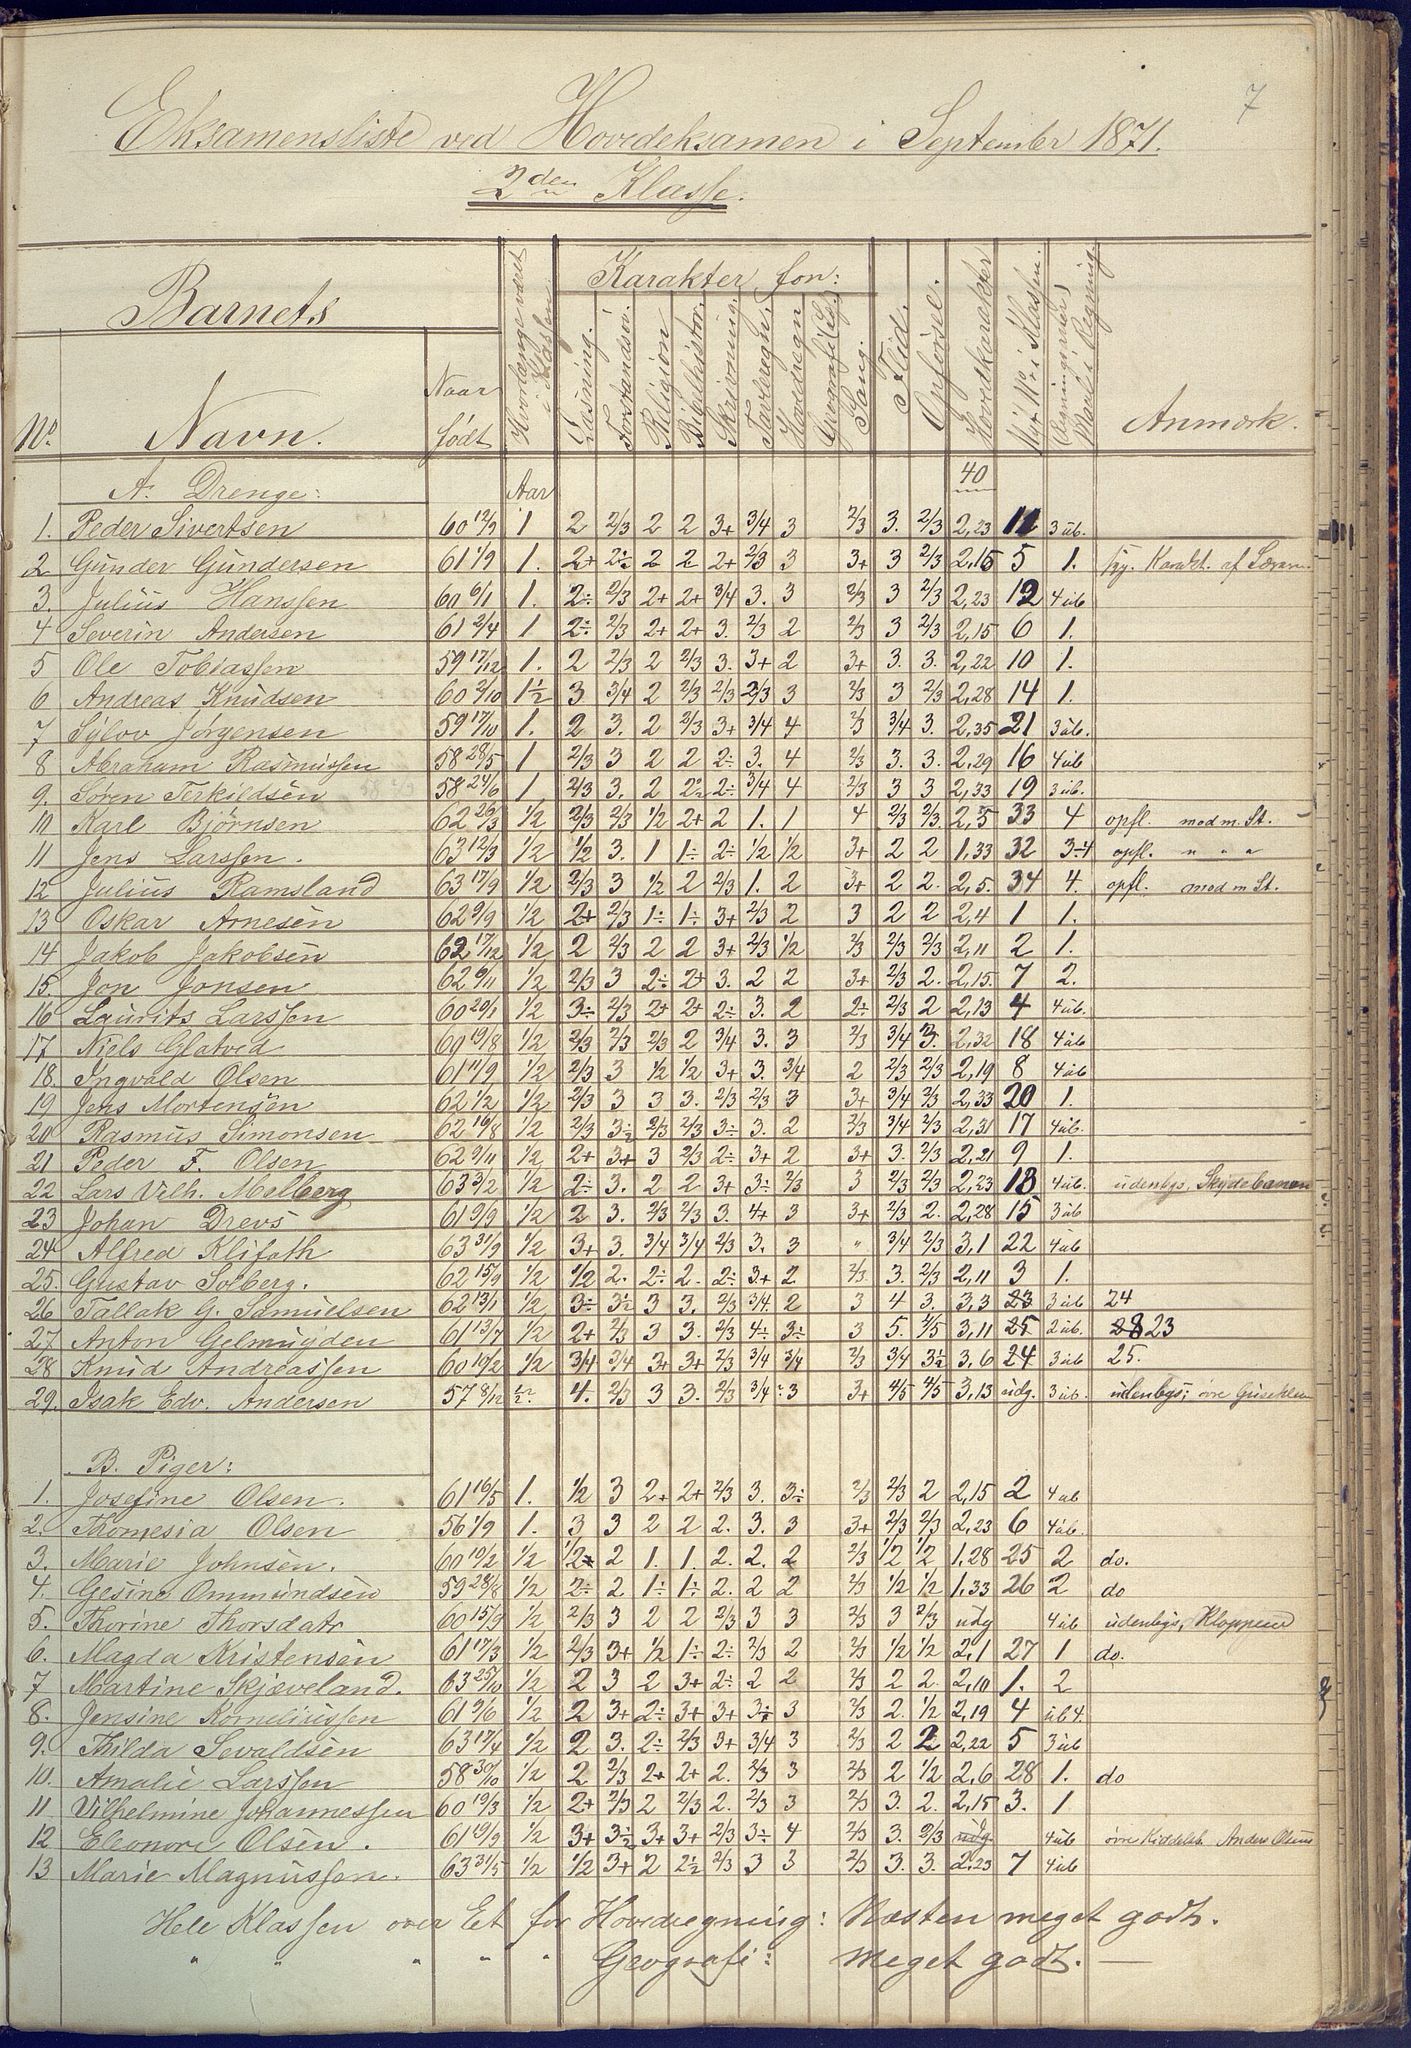 7
Eksamensliste ved Hovedeksamen i September 1871.
2den Klasse.
Barnets
No. Navn. Naar født Hvorlænge været i Klassen
Karakter for:
Læsning. Forstandsøv. Religion Bibelhistor. Skrivning. Tavleregn. Hovedregn Geografi Sang. Flid. Opførsel. Hovedkarakter Nyt No i Klassen. Anmærk.
A. Drenge: Aar 40
1. Peder Sivertsen 60 12/9 1 2 2/3 2 2 3+ 3/4 3 2/3 3. 2/3 2,23 11 3 ub.
2 Gunder Gundersen 61 1/9 1. 2+ 2½ 2 2 2+ 2/3 3 3+ 3 2/3 2,15 5 1. Karakt. af
3. Julius Hanssen 60 6/11 1. 2÷ 2/3 2+ 2+ 3/4 3. 3 2/3 3 2/3 2,23 12 4 ub
4 Severin Andersen 61 2/4 1 2÷ 2/3 2+ 2+ 3. 2/3 2 2/3 3 2/3 2,15 6 1.
5 Ole Tobiassen 59 17/12 1. 2 2/3 2 2/3 3. 3+ 2 3+ 3. 3. 2,22 10 1.
6 Andreas Knudsen 60 2/10 1½ 3 3/4 2 2/3 2/3 2/3 3 2/3 3 2/3 2,28 14 1.
7 Sylov Jørgensen 59 17/10 1. 2 3. 2 2/3 3+ 3/4 4 2/3 3/4 3. 2,35 21 3 ub.
8 Abraham Rasmussen 58 28/5 1 2/3 3 2 2 2÷ 3. 4 2/3 3. 3. 2,29 16 4 ub
9. Søren Terkildsen 58 24/6 1 2/3 3. 2 2½ 2÷ 3/4 4 2/3 3 3 2,33 19 3 ub.
10 Karl Bjørnsen 62 26/3 1/2 2/3 2/3 1/2 2+ 2 1. 1 4 2/3 2/3 2,5 33 4 opfl. med m. St.
11 Jens Larssen. 63 12/3 1/2 1/2 3. 1 1÷ 2÷ 1/2 1/2 3+ 2 2 1,33 32 3÷4 opfl. " " "
12 Julius Ramsland 63 17/9 1/2 2/3 3 1/2 2 2/3 1. 2 3+ 2 2. 2,5. 34 4. opfl. med m St.
13 Oskar Arnesen 62 9/9 1/2 2+ 2/3 1÷ 1÷ 3+ 2/3 2 3 2 2 2,4 1 1.
14 Jakob Jakobsen 62 17/12 1/2 2 2/3 2 2 3+ 2/3 1/2 2/3 2/3 2/3 2,11 2 1.
15. Jon Jonsen 62 6/11 1/2 2/3 3 2÷ 2+ 3. 2 2 3+ 2/3 2. 2,15. 7 2.
16 Laurits Larssen 60 20/1 1/2 3÷ 2/3 2+ 2+ 2÷ 3. 2 2÷ 2/3 2 2,13 4 4 ub.
17 Niels Glatved 60 19/8 1/2 2/3 2/3 2/3 2 3/4 3. 3 2/3 3/4 3. 2,32 18 4 ub
18. Ingvald Olsen 61 11/9 1/2 2/3 3 1/2 1/2 3+ 3. 3/4 2 2/3 2/3 2,19 8 4 ub
19 Jens Mortensen 62 1/2 1/2 2/3 3 3 3. 2/3 2/3 3 3+ 3/4 2/3 2,33 20 1.
20 Rasmus Simonsen 62 16/8 1/2 2/3 3½ 2/3 2/3 3÷ 3. 2 2/3 3/4 2/3 2,31 17 4 ub.
21 Peder F. Olsen 62 9/11 1/2 2+ 3+ 3 2/3 2÷ 3+ 2 3+ 3. 2/3 2,21 9 1.
22 Lars Vilh. Melberg 63 3/2 1/2 2÷ 3. 2 2 3+ 3÷ 2/3 3 2/3 2/3 2,23 13 4 ub. udenbys, Skydebanen
23 Johan Drevs 61 9/9 1/2 2 3. 2/3 2/3 3. 4+ 3 3+ 2/3 2. 2,28 15 3 ub
24 Alfred Klifath 63 31/9 1/2 3+ 3. 3/4 3/4 2/3 3. 3 " 3/4 2/3 3,1 22 4 ub
25. Gustav Solberg. 62 15/9 1/2 1/2 2. 2÷ 2. 2÷ 3+ 2 2/3 3. 2/3 2,11 3 1.
26 Tallak G. Samuelsen 62 13/1 1/2 3÷ 3½ 3 3. 2/3 3/4. 2 3 4 3. 3,3 23 3 ub 24
27 Anton Gelmuyden 61 13/7 1/2 2+ 2/3 3 3. 2/3 4÷ 3÷ 3 5. 4/5 3,11 25 2 ub. 28 23
28 Knud Andreassen 60 10/2 1/2 3/4 3/4 3+ 3+ 2/3 3/4 3/4 2/3 3/4 3½ 3,6 24 3 ub 25.
29. Isak Edv. Andersen 57 8/12 4. 2/3 3 3. 2/3 3/4 3 3+ 4/5 4/5 3,13 udg. 3 ub. udenbys; øvre
B. Piger:
1. Josefine Olsen. 61 16/5 1. 1/2 3 2+ 2+ 2/3 3. 3÷ 2/3 2/3 2 2,15 2 4 ub
2. Thomesia Olsen 56 1/9 1. 3 3 2 2 2. 3. 3 3+ 2/3 2/3 2,23 6 4 ub.
3. Marie Johnsen. 60 10/2 1/2 1/2 2 1. 1. 2. 2. 2 2/3 1/2 1/2 1,28 25 2 do.
4. Gesine Ommundsen 59 28/8 1/2 2÷ 2. 1÷ 1÷ 2. 2 2 2/3 1/2 1/2 1,33 26 2 do
5. Thorine Thorsdatr 60 15/9 1/2 2/3 3 2 2 2/3 3 3 2/3 3 2/3 udg 4 ub udenbys, Kloppene
6. Magda Kristensen 61 17/3 1/2 2/3 3+ 1/2 1÷ 2÷ 2/3 2 2/3 1/2 1/2 2,1 27 1 do.
7 Martine Skjæveland. 63 25/10 1/2 2 3 2 3+ 2÷ 2 2 2/3 2 2. 2,10 1. 2
8. Jensine Korneliussen 61 9/6 1/2 2 3+ 2÷ 3+ 3+ 3÷ 3 2/3 2. 1/2 2,19 4 ub 4.
9. Thilda Sevaldsen 63 17/4 1/2 2 3. 2÷ 2/3 3+ 3/4 3 2/3 2 2 2,22 5 3 ub
10. Amalie Larssen 58 30/10 1/2 2 2/3 2+ 2+ 2. 2/3 3 2/3 2 1/2 2,6 28 1. do
11 Vilhelmine Johannessen 60 19/3 1/2 2+ 2/3 2 2/3 2. 2/3 3 2/3 3. 2. 2,15 3. 1
12 Eleonore Olsen. 61 19/9 1/2 3+ 3½ 3+ 3+ 2/3 3÷ 4 2/3 3. 2/3 udg 4 ub øvre Anders Olsens
13 Marie Magnussen. 63 31/5 1/2 1/2 3+ 2 2½ 2/3 3 3 2/3 3. 3. 2,23 7 4 ub
Hele Klassen over Et for Hovedregning: Næsten meget godt.
" " " " " Geografi: Meget godt. —